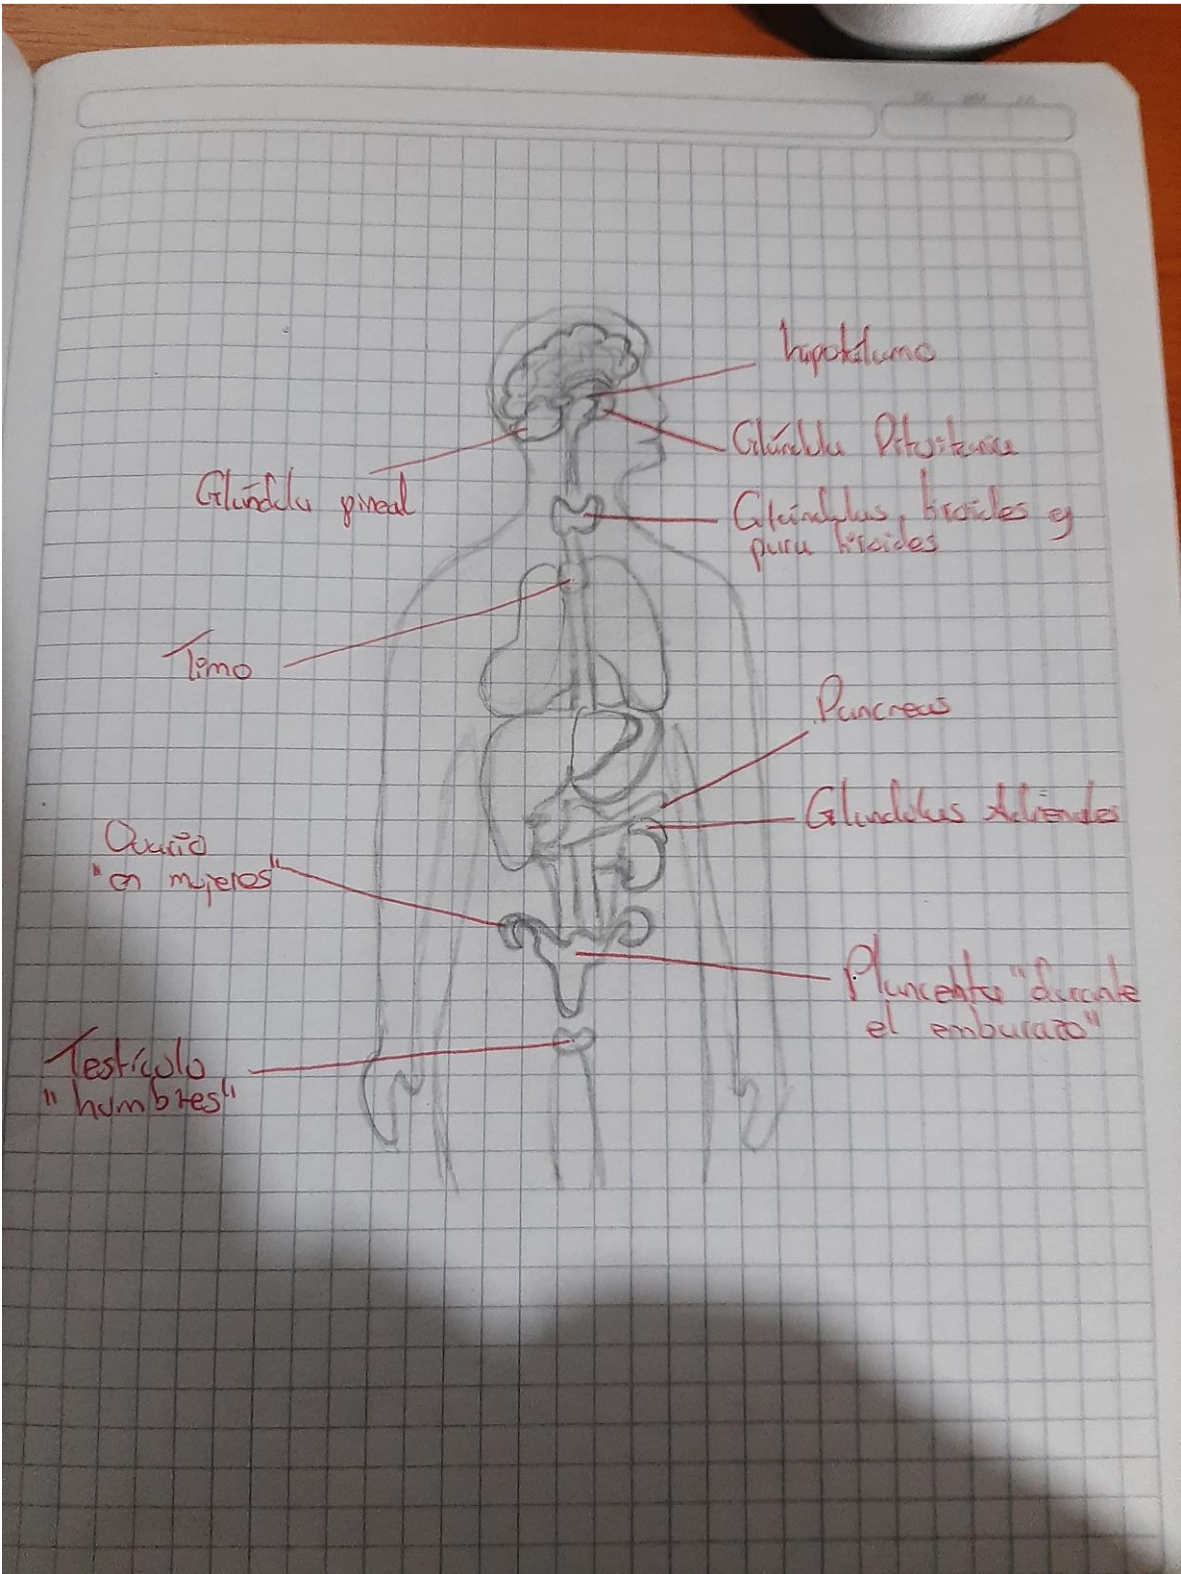 hipotálamo
Glándula Pituitaria
Glándula pineal
Glándulas, tiroides y
para tiroides
Timo
Pancreas
Glandulas Adrenales
Ovario
"en mujeres"
Plancenta "durante
el embarazo"
Testículo
"hombres"